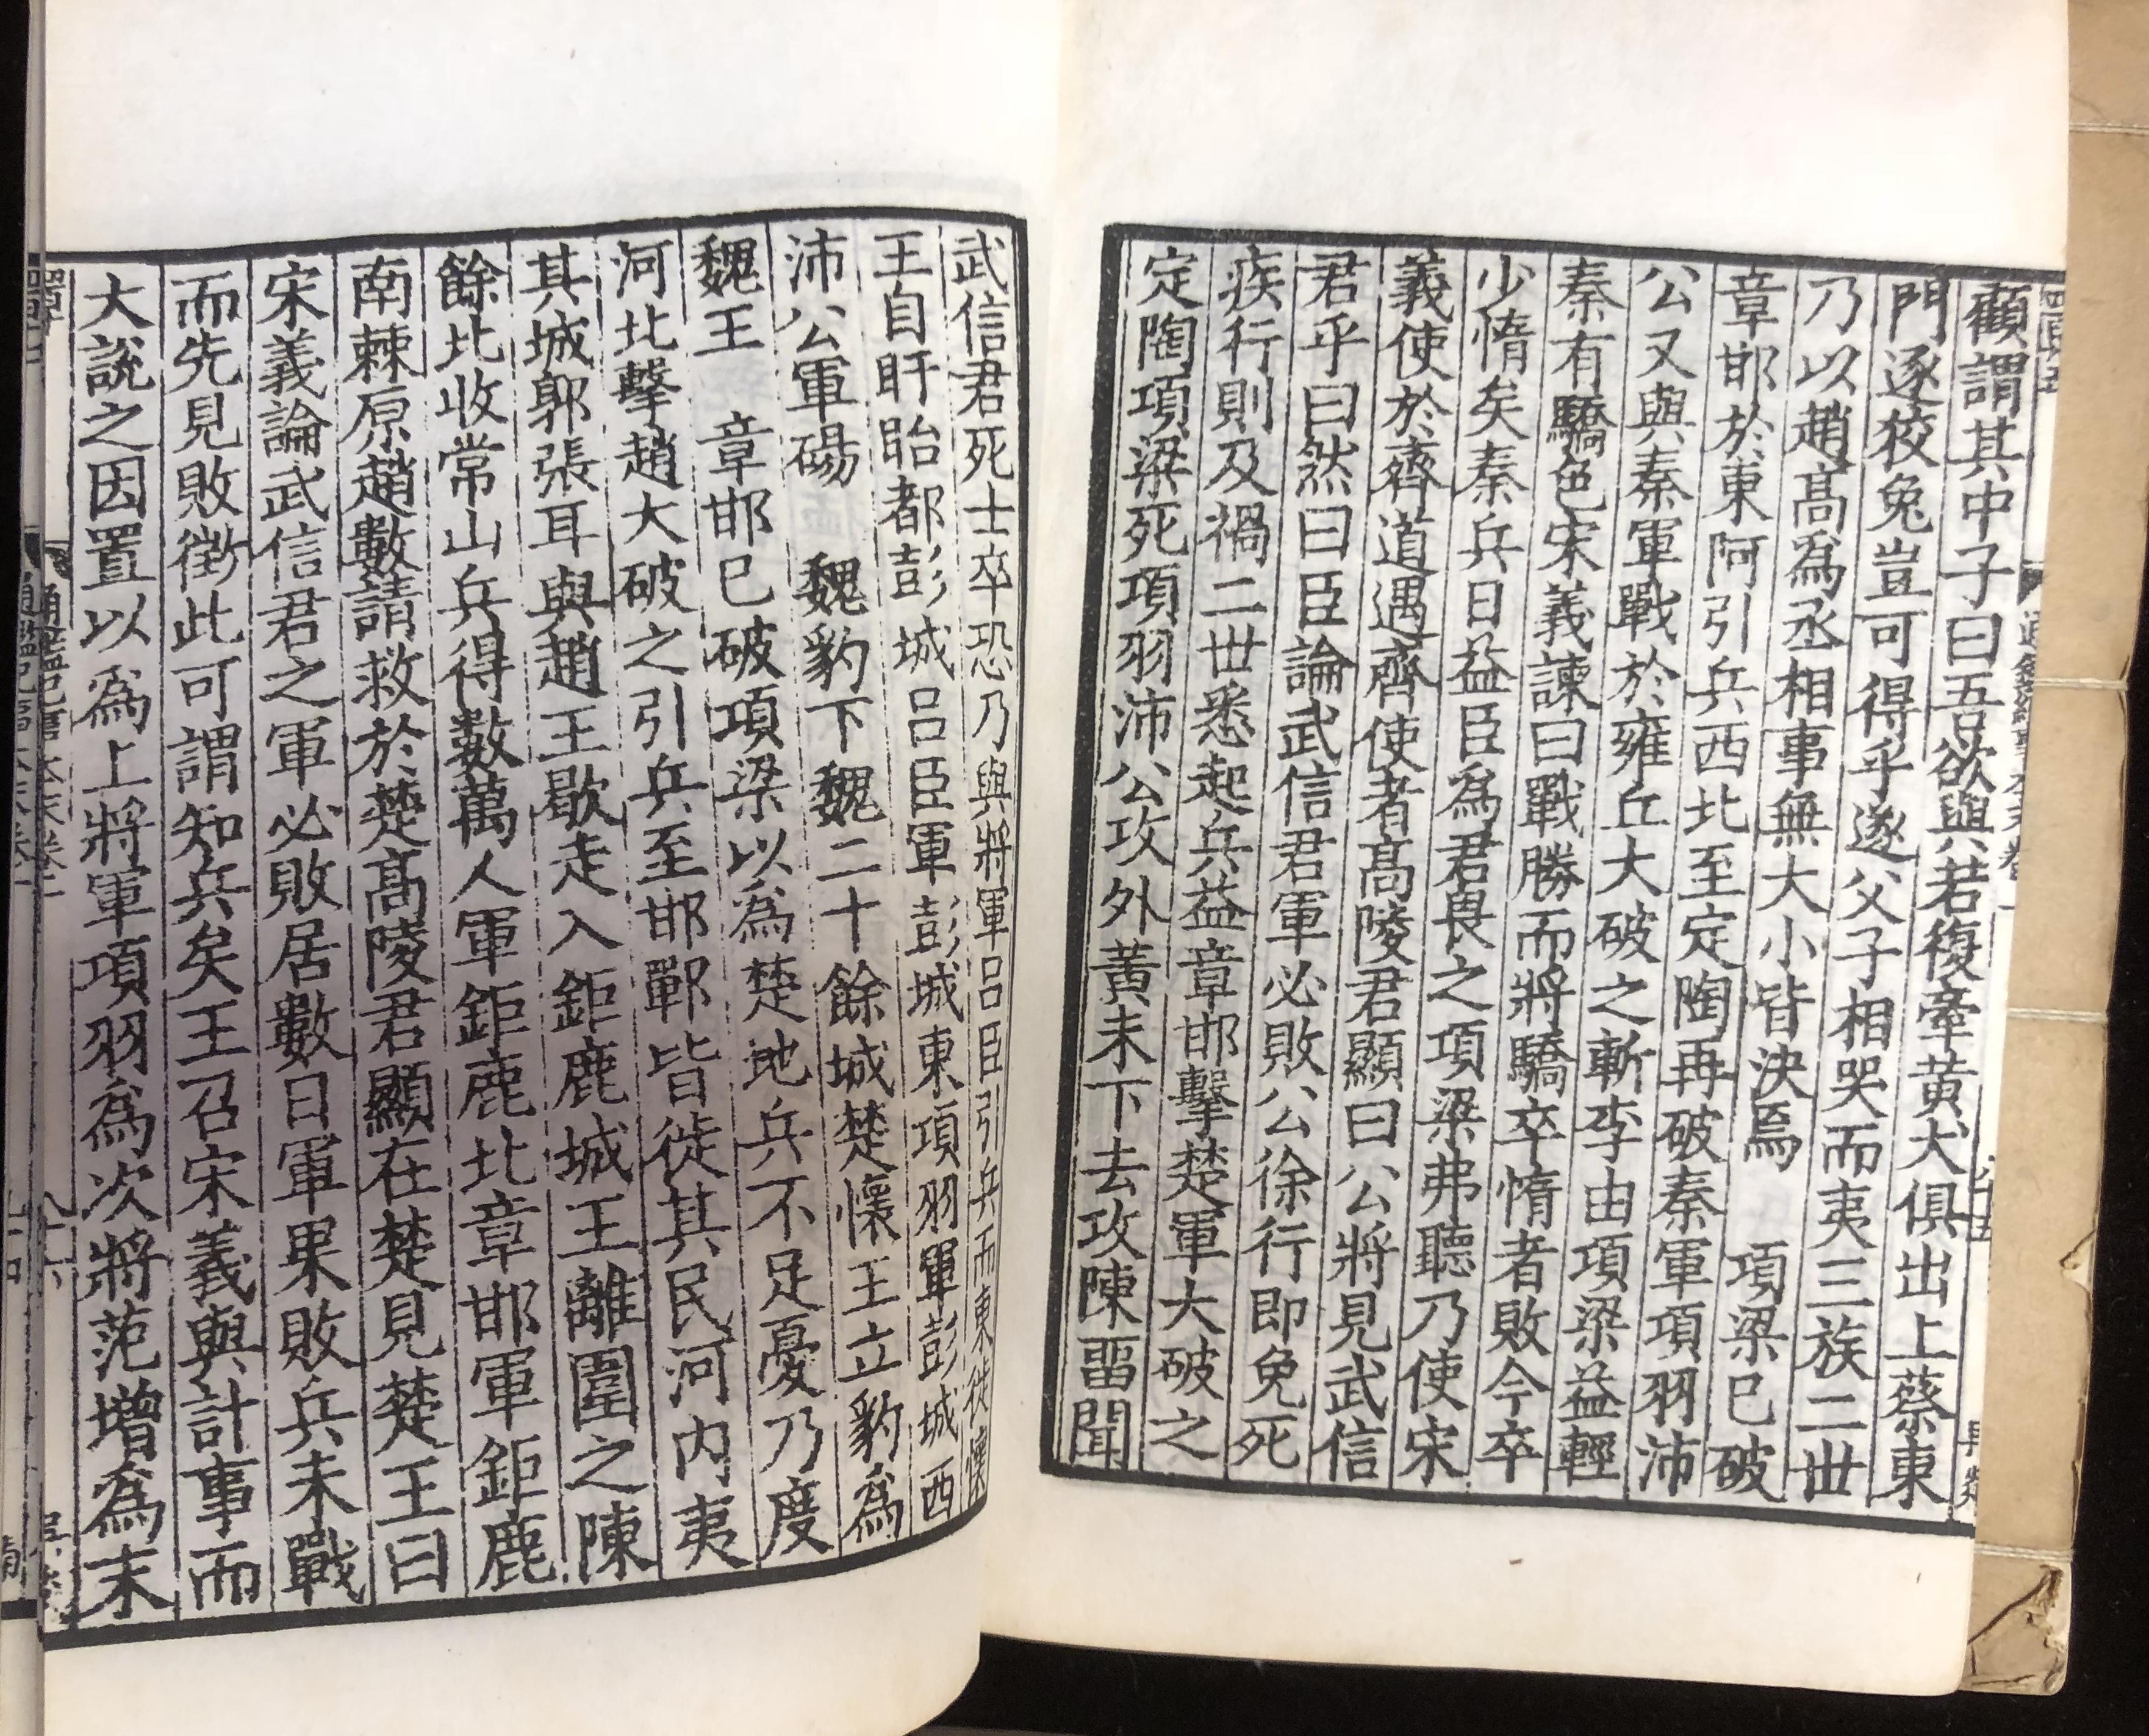 顧謂其中子曰吾欲與若復牽黃犬俱出上蔡東
門逐狡兔豈可得乎遂父子相哭而夷三族二世
乃以趙髙爲丞相事無大小皆決焉　項梁已破
章邯於東阿引兵西北至定陶再破秦軍項羽沛
公又與秦軍戰於雍丘大破之斬李由項梁益輕
秦有驕色宋義諫曰戰勝而將驕卒惰者敗今卒
少惰矣秦兵日益臣爲君畏之項梁弗聽乃使宋
義使於齊道遇齊使者髙陵君顯曰公將見武信
君乎曰然曰臣論武信君軍必敗公徐行即免死
疾行則及禍二世悉起兵益章邯擊楚軍大破之
定陶項梁死項羽沛公攻外黃未下去攻陳畱聞
武信君死士卒恐乃與將軍呂臣引兵而東徙懷
王自盱眙都彭城呂臣軍彭城東項羽軍彭城西
沛公軍碭　魏豹下魏二十餘城楚懷王立豹爲
魏王　章邯已破項梁以爲楚地兵不足憂乃度
河北擊趙大破之引兵至邯鄲皆徙其民河內夷
其城郭張耳與趙王歇走入鉅鹿城王離圍之陳
餘北收常山兵得數萬人軍鉅鹿北章邯軍鉅鹿
南棘原趙數請救於楚髙陵君顯在楚見楚王曰
宋義論武信君之軍必敗居數日軍果敗兵未戰
而先見敗徵此可謂知兵矣王召宋義與計事而
大說之因置以爲上將軍項羽爲次將范增爲末